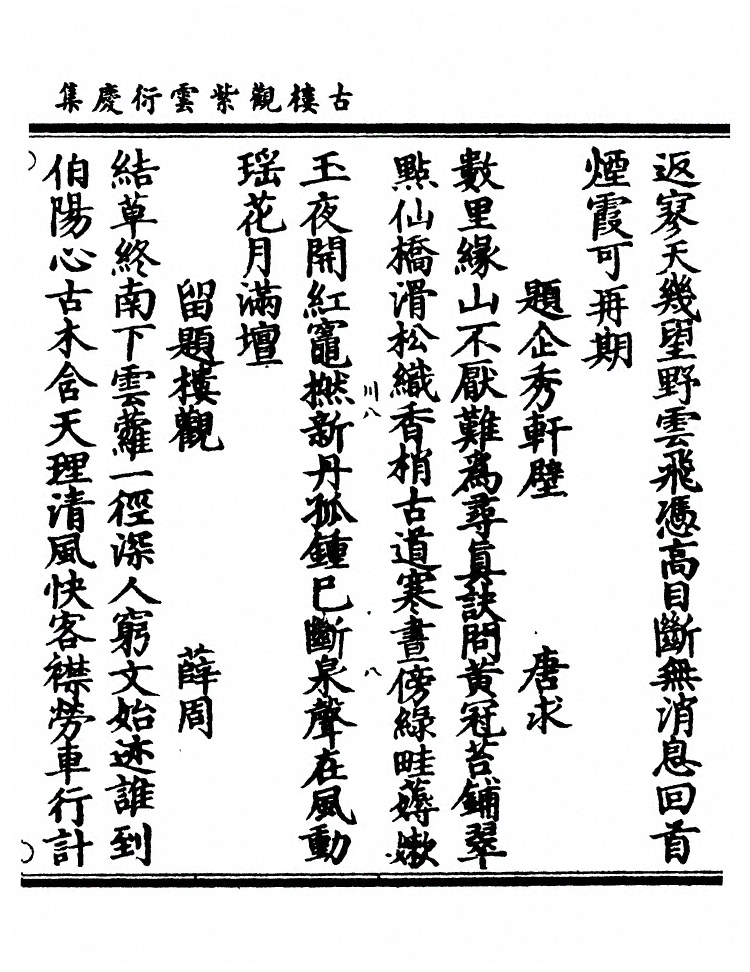 古樓觀紫雲衍慶集
返寥天幾望野雲飛憑高目斷無消息回首
煙霞可再期
題企秀軒壁 唐求
數里緣山不厭難爲尋真訣問黃冠苔鋪翠
點仙橋滑松織香梢古道寒晝傍綠畦薅嫩
玉夜開紅竈撚新丹孤鍾巳斷泉聲在風動
瑶花月滿壇
留題樓觀 薛周
結草終南下雲蘿一徑深人窮文始迹誰到
伯陽心古木含天理清風快客襟勞車行計
川八
八